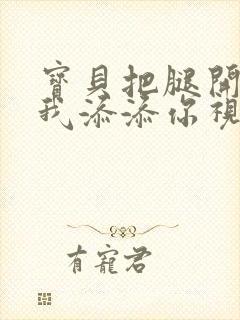 寶貝把腿開
我添添你視
有寵君